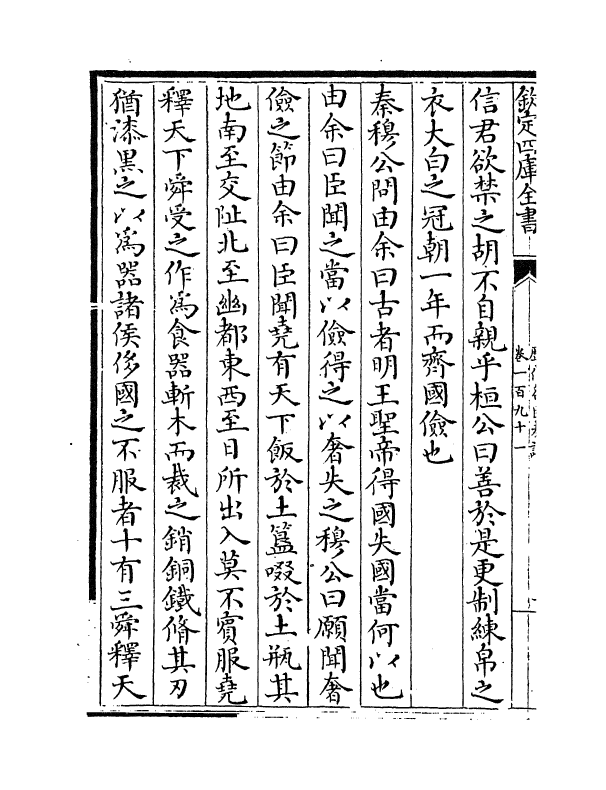 欽定四庫全書
卷一百九十一
信君欲禁之胡不自親乎桓公曰善於是更制練帛之
衣大白之冠朝一年而齊國儉也
秦穆公問由余曰古者明王聖帝得國失國當何以也
由余曰臣聞之當以儉得之以奢失之穆公曰願聞奢
儉之節由余曰臣聞堯有天下飯於土簋啜於土瓶其
地南至交阯北至幽都東西至日所出入莫不賓服堯
釋天下舜受之作為食器斬木而裁之銷銅鐵脩其刃
猶漆黑之以為器諸侯侈國之不服者十有三舜釋天